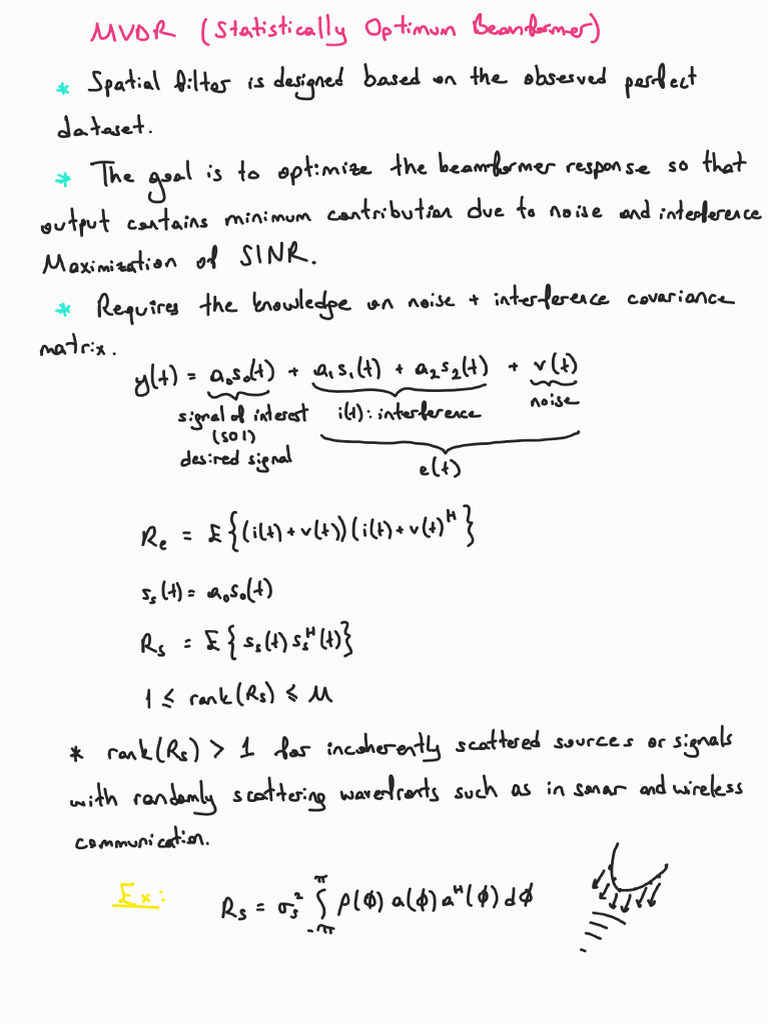 MVDR (Statistically Optimum Beamformer)
* Spatial filter is designed based on the observed perfect
dataset.
* The goal is to optimize the beamformer response so that
output contains minimum contribution due to noise and interference
Maximization of SINR.
* Requires the knowledge on noise + interference covariance
matrix.
y(t) = a₀s₀(t) + a₁s₁(t) + a₂s₂(t) + v(t)
signal of interest i(t): interference noise
(SOI)
desired signal e(t)
Rₑ = E{(i(t) + v(t))(i(t) + v(t)ᴴ}
sₛ(t) = a₀s₀(t)
Rₛ = E{sₛ(t) sₛᴴ(t)}
1 ≤ rank(Rₛ) ≤ M
* rank(Rₛ) > 1 for incoherently scattered sources or signals
with randomly scattering wavefronts such as in sonar and wireless
communication.
Ex: Rₛ = σₛ² ∫_{-π}^{π} ρ(ϕ) a(ϕ) aᴴ(ϕ) dϕ